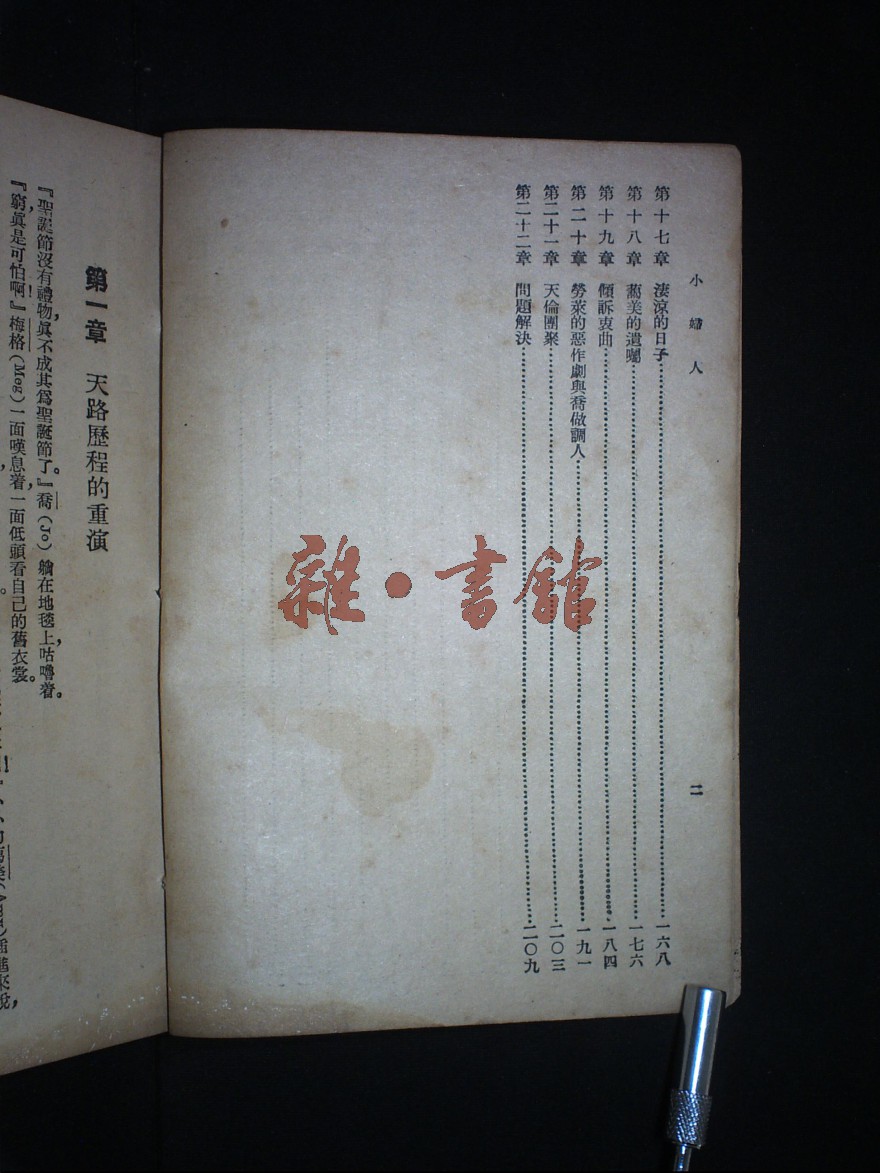 小婦人
二
第十七章 淒涼的日子……一六八
第十八章 藹美的遺囑……一七六
第十九章 傾訴衷曲……一八四
第二十章 勞萊的惡作劇與喬做調人……一九一
第二十一章 天倫團聚……二〇三
第二十二章 問題解決……二〇九
雜·書館
第一章 天路歷程的重演
『聖誕節沒有禮物，眞不成其爲聖誕節了。』喬(Jo)躺在地毯上咕嚕着。
『窮眞是可怕啊！』梅格(Meg)一面嘆息着，一面低頭看自己的舊衣裳。